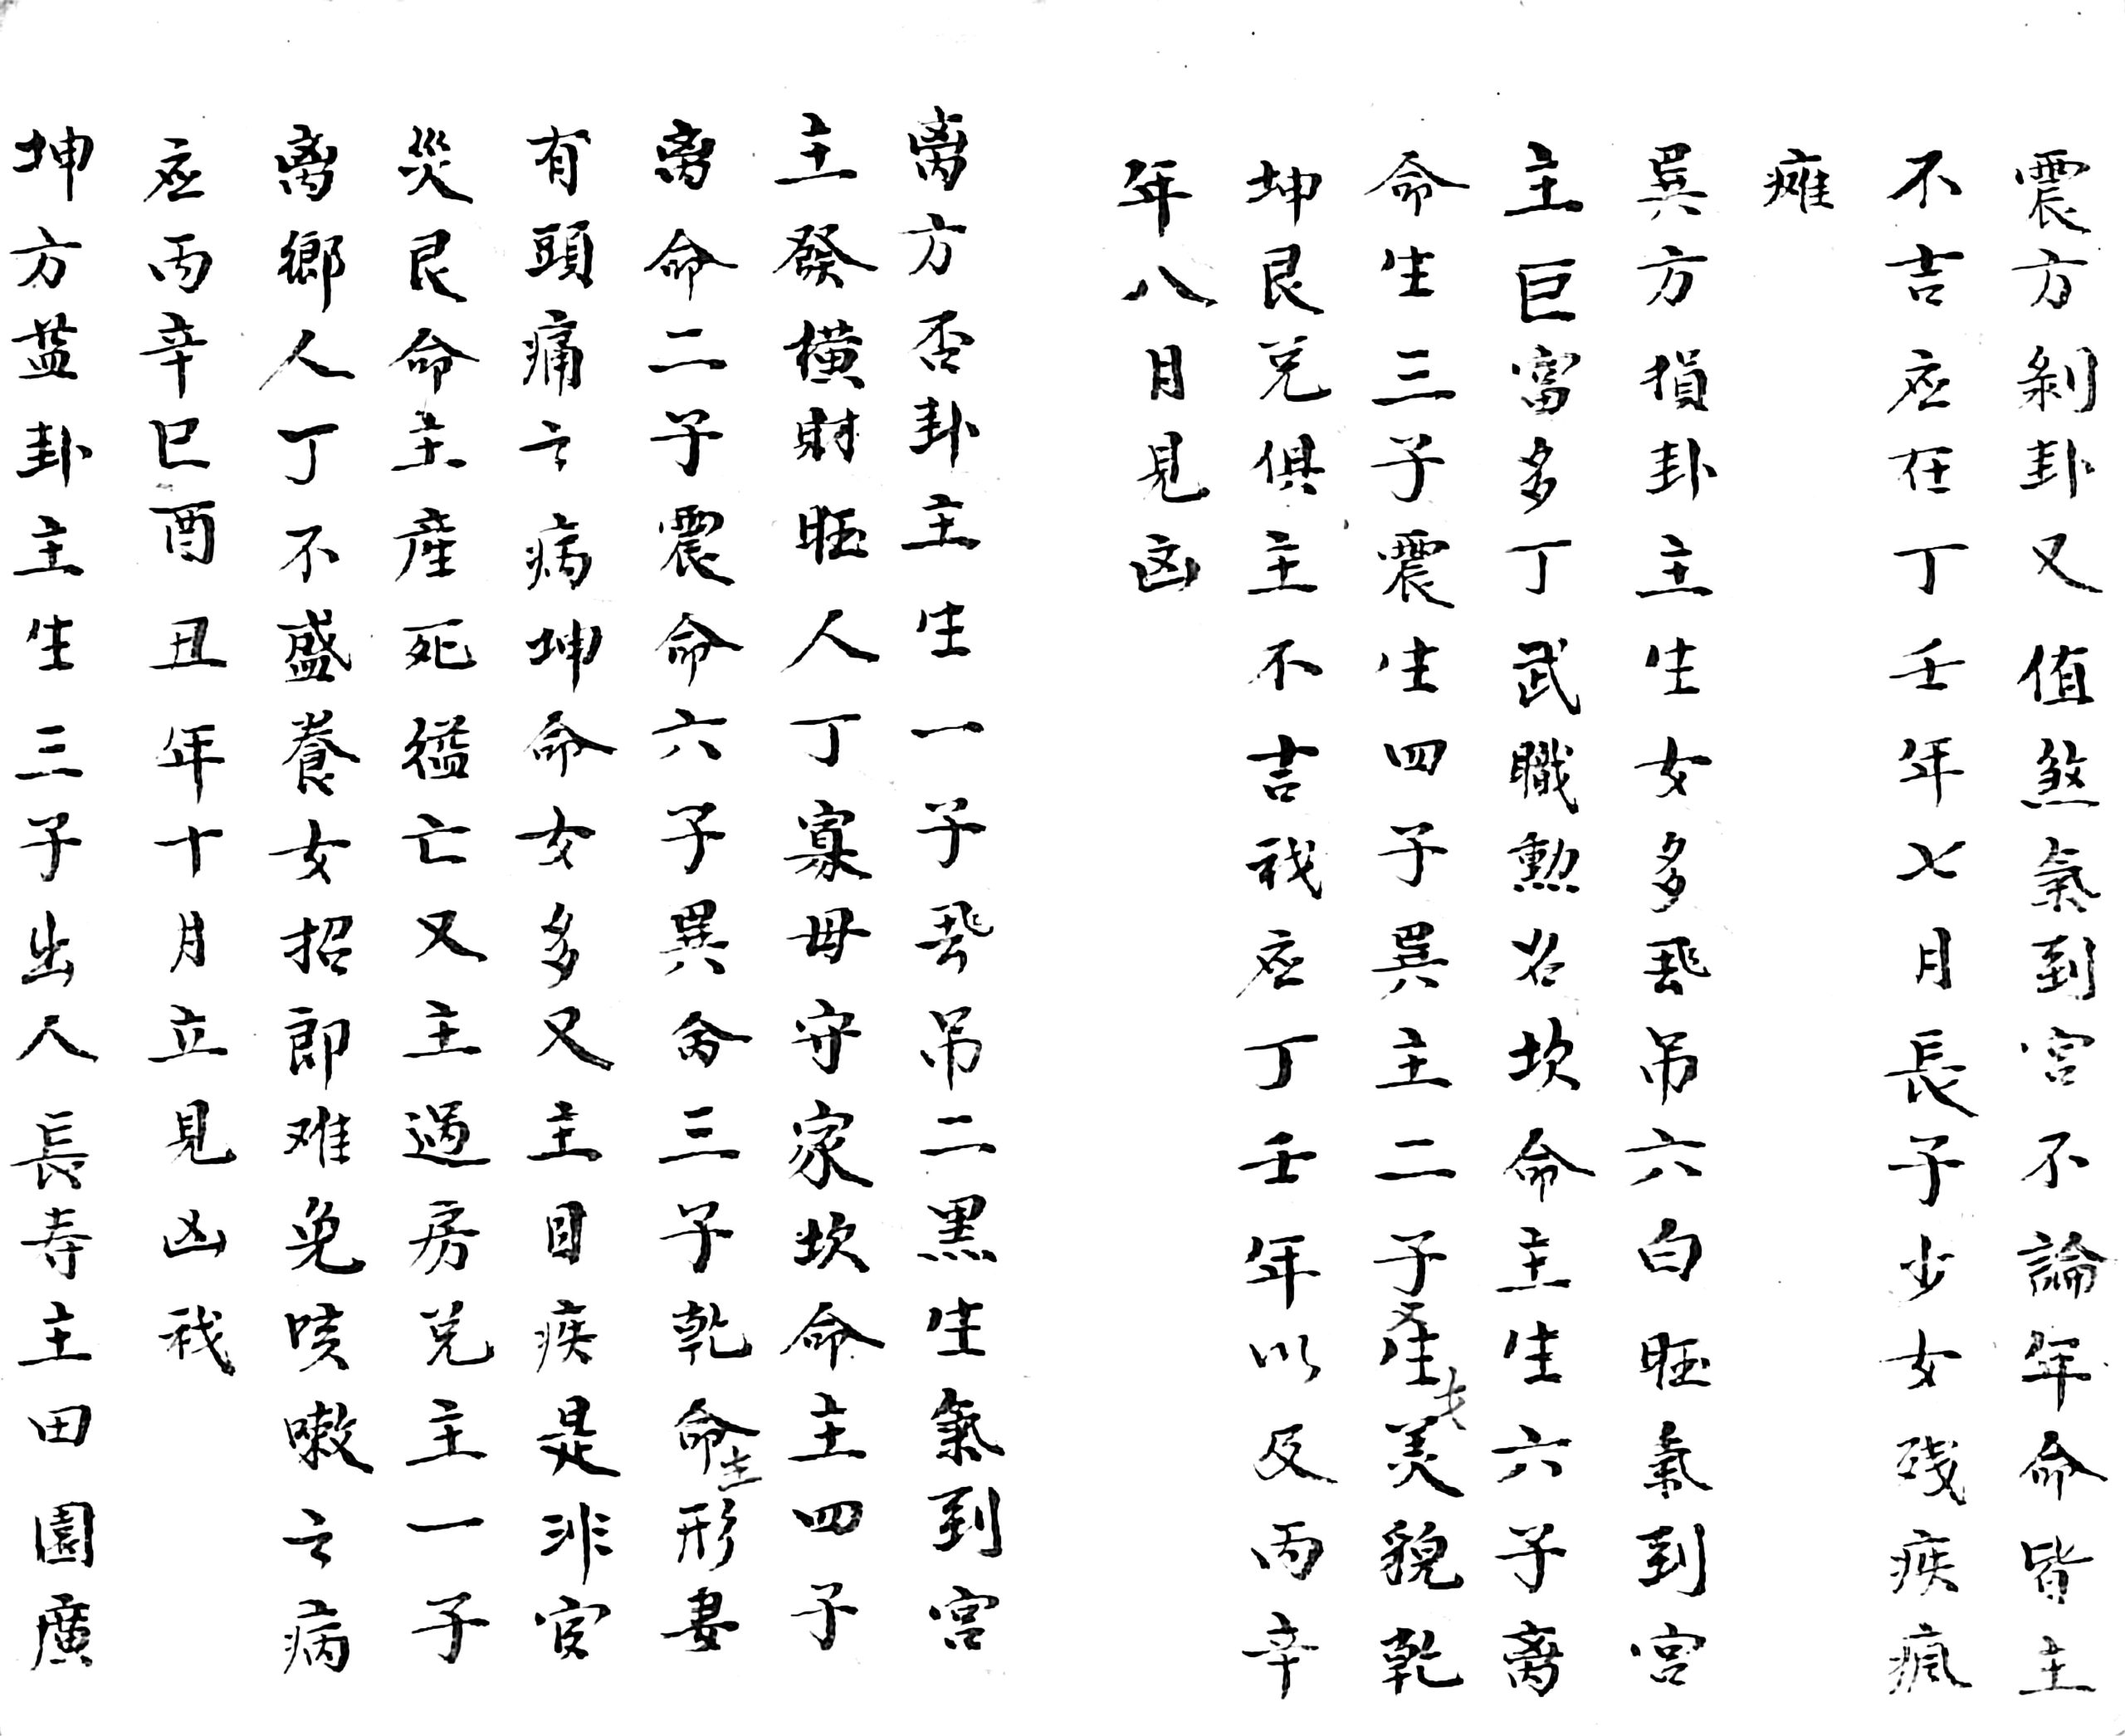 震方剝卦又值煞氣到宮不論年命皆主
不吉应在丁壬年七月長子少女残疾瘋
瘫
巽方損卦主生女多飛吊六白旺氣到宮
主巨富多丁武職勲名坎命主生六子离
命生三子震生四子巽主二子又生女美貌乾
坤艮兑俱主不吉祸应丁壬年以及丙辛
年八月見凶
离方否卦主生一子飛吊二黑生氣到宮
主發橫財旺人丁寡母守家坎命主四子
离命二子震命六子巽命三子乾命主形妻
有頭痛之病坤命女多又主目疾是非官
災艮命主産死縊亡又主過房兑主一子
离鄉人丁不盛養女招郎难免咳嗽之病
应丙辛巳酉丑年十月立見凶祸
坤方益卦主生三子出人長寿主田園廣